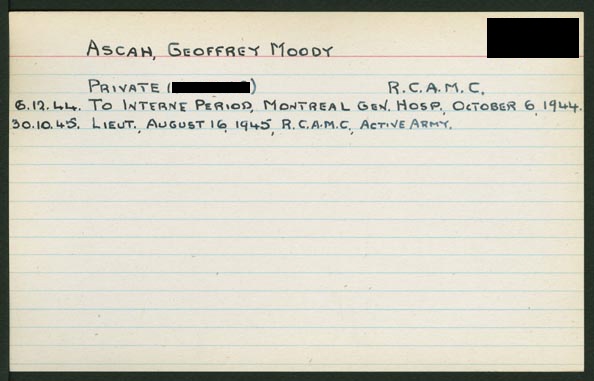 ASCAH, GEOFFREY MOODY
PRIVATE ( ) R.C.A.M.C.
6.12.44. TO INTERNE PERIOD, MONTREAL GEN. HOSP., OCTOBER 6, 1944.
30.10.45. LIEUT., AUGUST 16, 1945, R.C.A.M.C., ACTIVE ARMY.